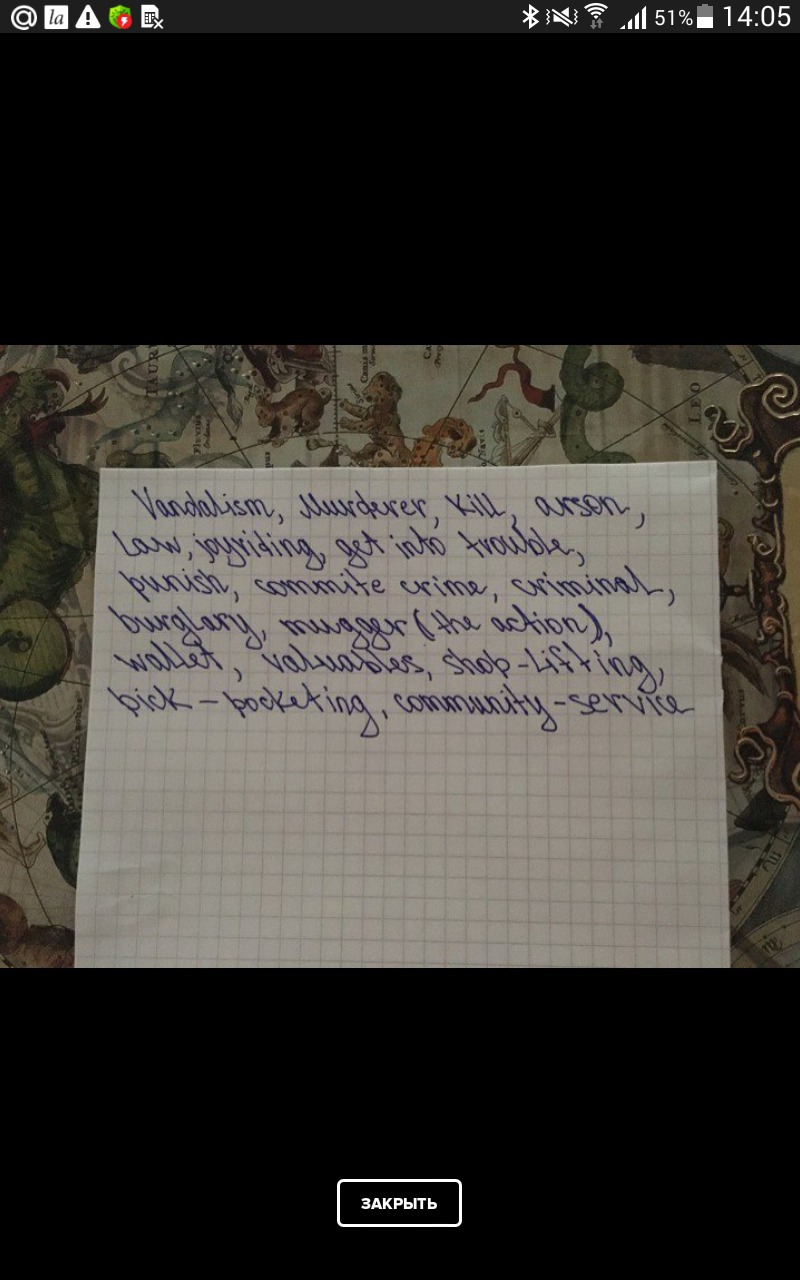 la 51% 14:05
TAUR
LEO
Vandalism, Murderer, Kill, arson,
Law, joyriding, get into trouble,
punish, commite crime, criminal,
burglary, mugger (the action),
wallet, valuables, shop-lifting,
pick-pocketing, community-service
ЗАКРЫТЬ